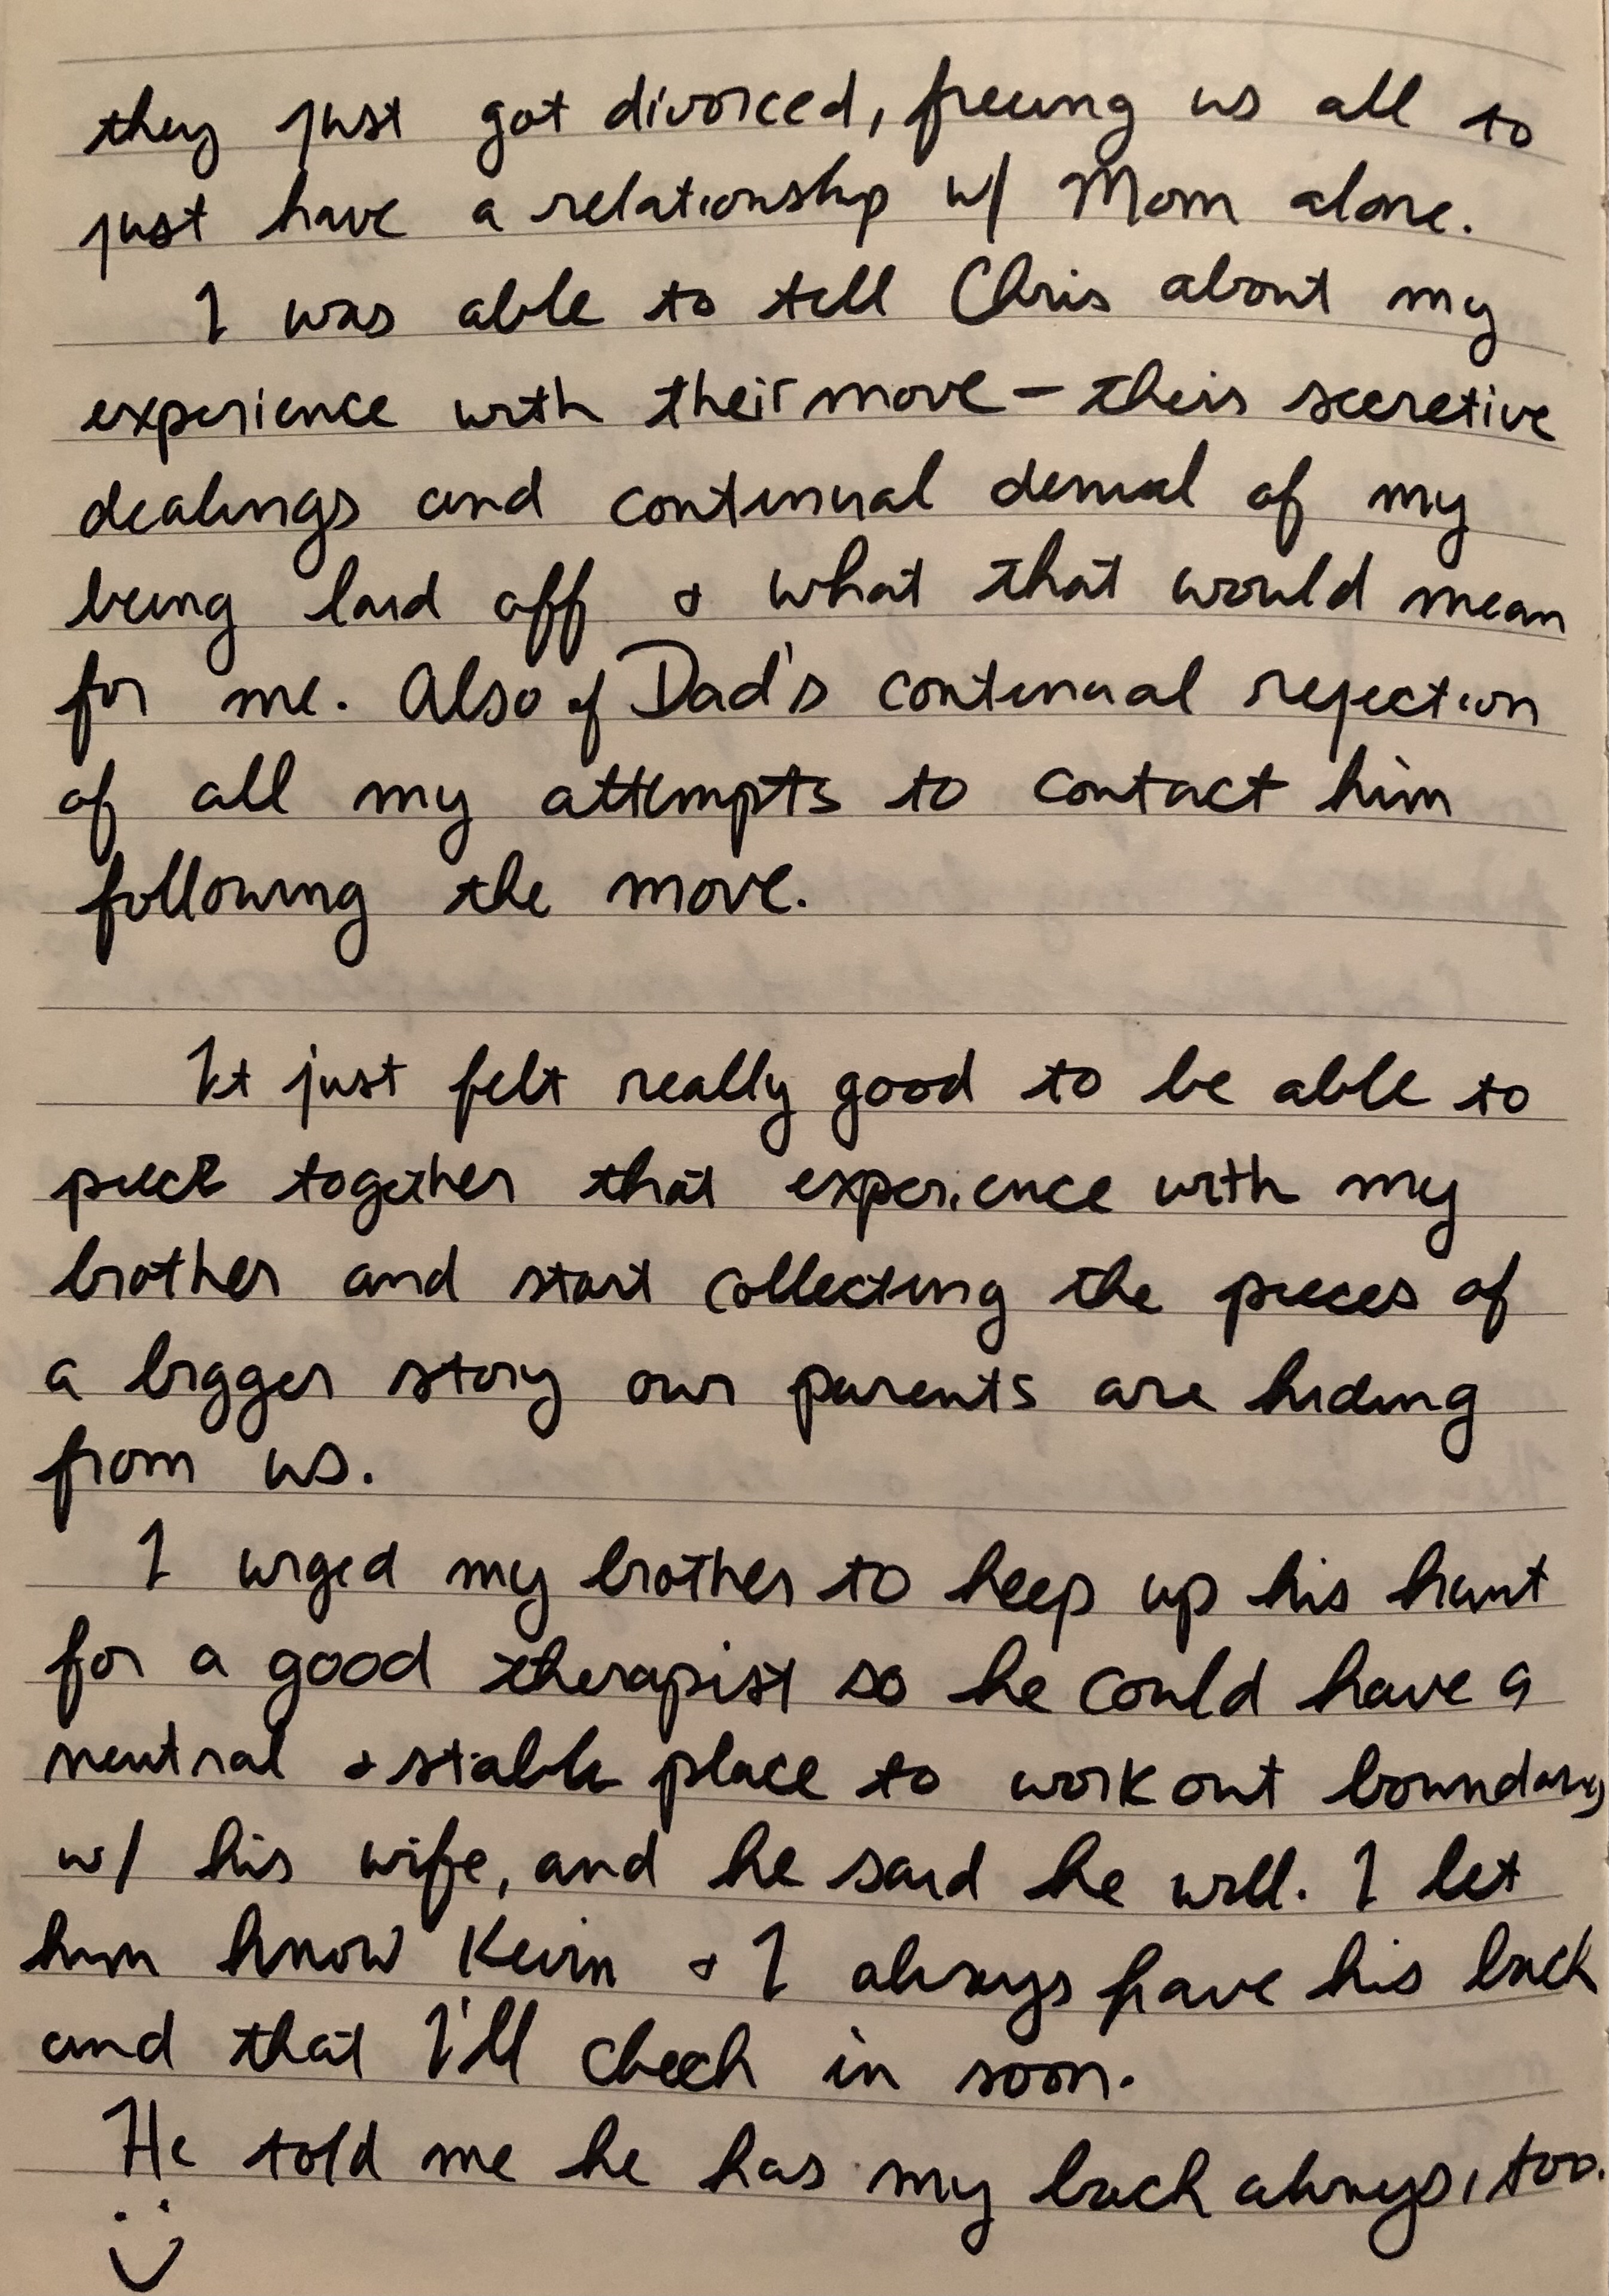 they just got divorced, freeing us all to
just have a relationship w/ Mom alone.
I was able to tell Chris about my
experience with their move – their secretive
dealings and continual denial of my
being laid off & what that would mean
for me. Also of Dad's continual rejection
of all my attempts to contact him
following the move.
It just felt really good to be able to
piece together that experience with my
brother and start collecting the pieces of
a bigger story our parents are hiding
from us.
I urged my brother to keep up his hunt
for a good therapist so he could have a
neutral & stable place to work out boundary
w/ his wife, and he said he will. I let
him know Kevin & I always have his back
and that I'll check in soon.
He told me he has my back always, too.